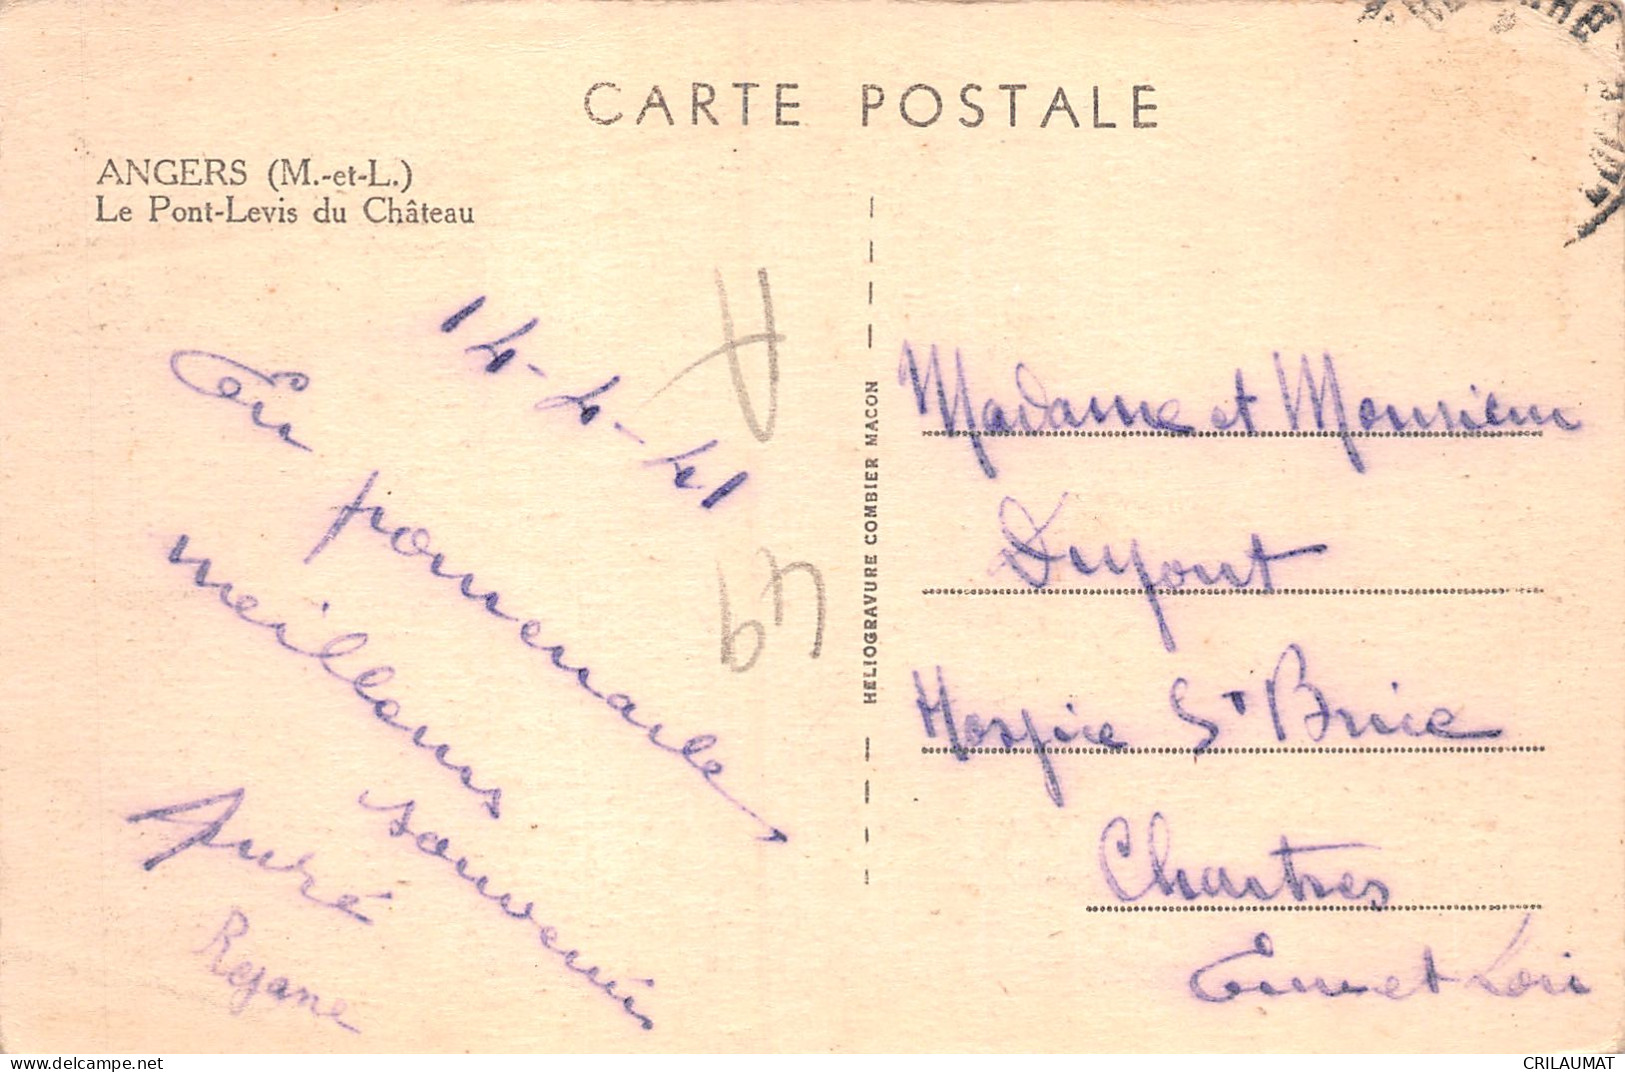 CARTE POSTALE
ANGERS (M.-et-L.)
Le Pont-Levis du Château
14-4-41
En promenade
meilleurs
souvenirs
Auré
Rejane
A
49
HELIOGRAVURE COMBIER MACON
Madame et Monsieur
Dupont
Hospice St Brice
Chartres
Eure et Loir
www.delcampe.net
CRILAUMAT